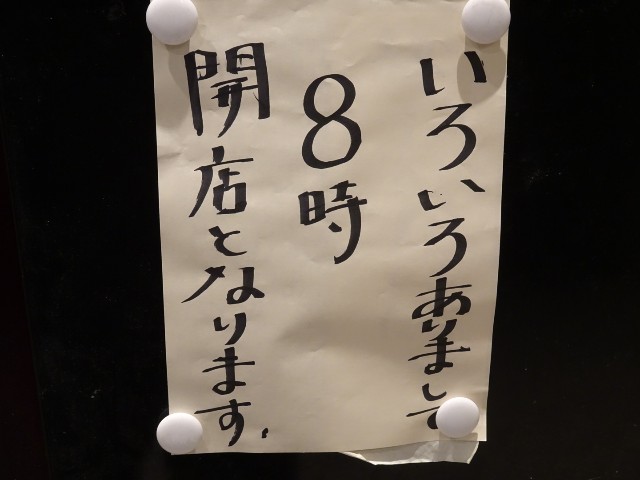 いろいろありまして
8時
開店となります.